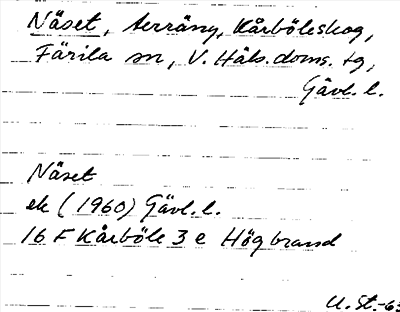 Näset, terräng, Kårböleskog,
Färila sn, V. Häls. doms. tg,
Gävl. l.
Näset
ek (1960) Gävl. l.
16 F Kårböle 3 e Högbrand
U. St.-63